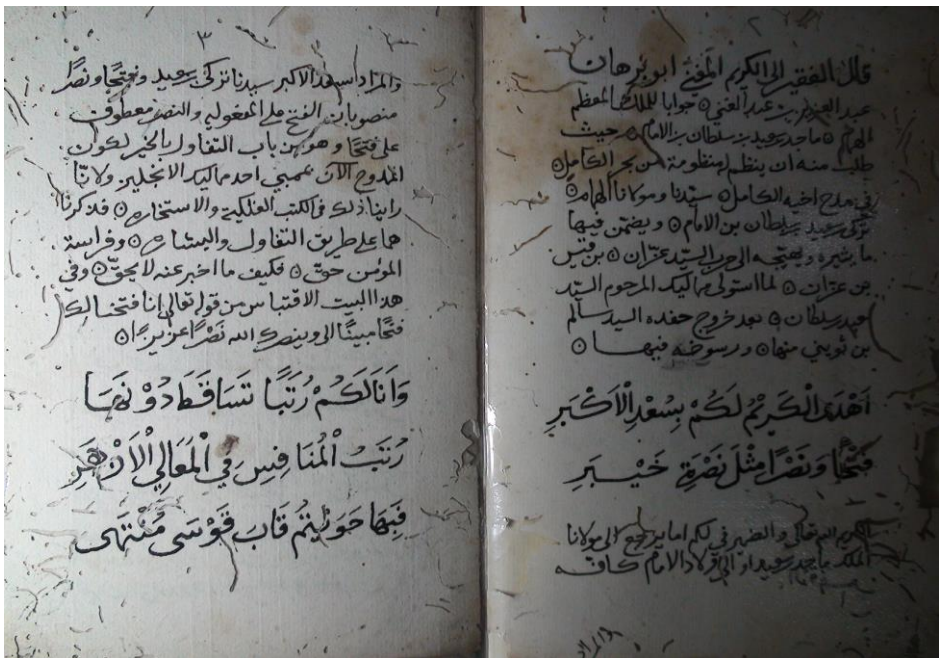 ٢
قال الفقير الى الكريم المغني ابو برهان
عبد العزيز بن عبد الغني ۞ جوابا للملك المعظم
الهمام ۞ ماجد بن سعيد بن سلطان بن الامام ۞ حيث
طلب منه ان ينظم له منظومة من بحر الكامل ۞
في مدح اخيه الكامل ۞ سيّدنا ومولانا الهمام ۞
تركي بن سعيد بن سلطان بن الامام ۞ ويضمن فيها
ما يثيره ويهيّجه الى حرب السيّد عزّان ۞ بن قيس
بن عزّان ۞ لما استولى ممالك المرحوم السيّد
سعيد بن سلطان ۞ بعد خروج حفده السيد سالم
بن ثويني منها ۞ ورسوخه فيها ۞
اَهْدَى الْكَرِيْمُ لَكُمْ بِسُعْدِ الْاَكْبَرِ
فَتْحًا وَنَصْرًا مِثْلَ نَصْرَةِ خَيْبَرِ
الكريم الله تعالى والضمير في لكم اما يرجع الى مولانا
الملك ماجد بن سعيد او الى اولاد الامام كافة
والمراد
٣
والمراد بسعد الاكبر سيدنا تركي بن سعيد وفتحًا ونصرًا
منصوبان الفتح على المفعولية والنصر معطوف
على فتحًا وهو من باب التفاول بالخير لكون
الممدوح الآن بمبي احد ممالك الانجليز ولانّا
راينا ذلك في الكتب الفلكية والاستخارة ۞ فذكرنا
هما على طريق التفاول والبشارة ۞ وفراسة
المؤمن حقّ ۞ فكيف ما اخبر عنه لا يحقّ ۞ وفي
هذا البيت الاقتباس من قوله تعالى انا فتحنا لك
فتحًا مبينًا الى وينصرك الله نَصْرًا عزيزًا ۞
وَاَنَالَكُمْ رُتَبًا تَسَاقَطَ دُوْنَهَا
رُتَبُ الْمُنَافِسِ فِي الْمَعَالِي الْاَزْهَرِ
فِيْهَا حَوَيْتُمْ قَابَ قَوْسَى مُنْتَهَى